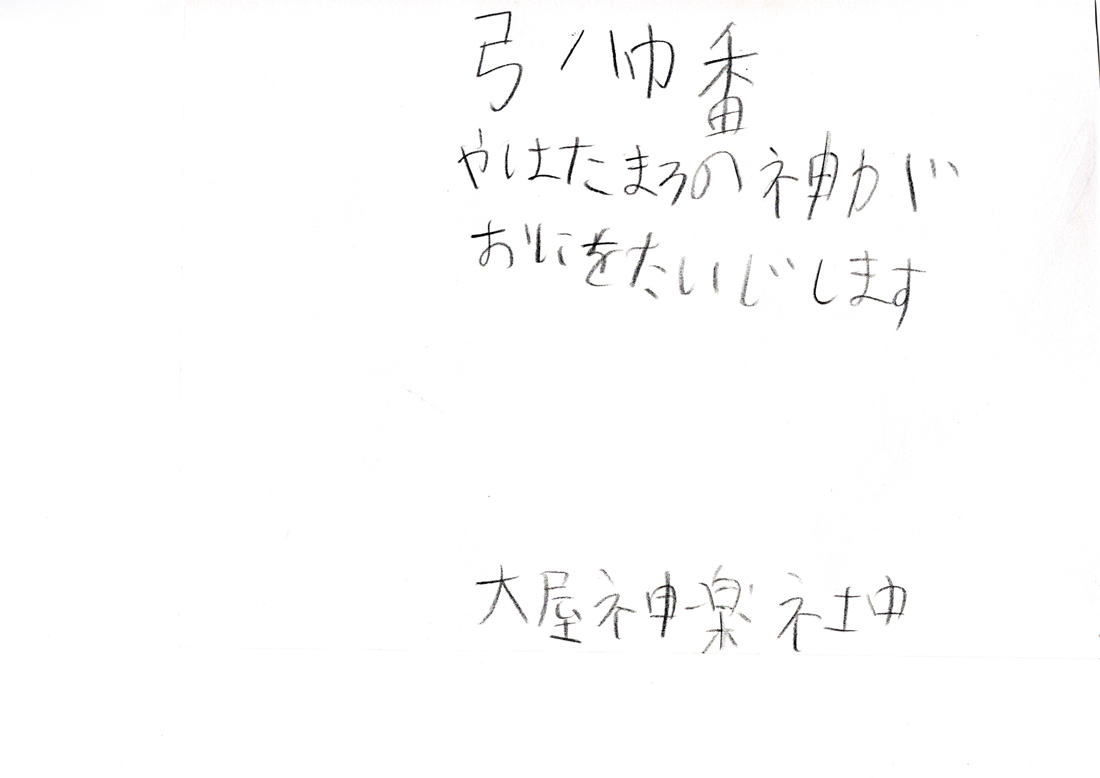 弓八幡
やはたまろの神が
おにをたいじします
大屋神楽社中